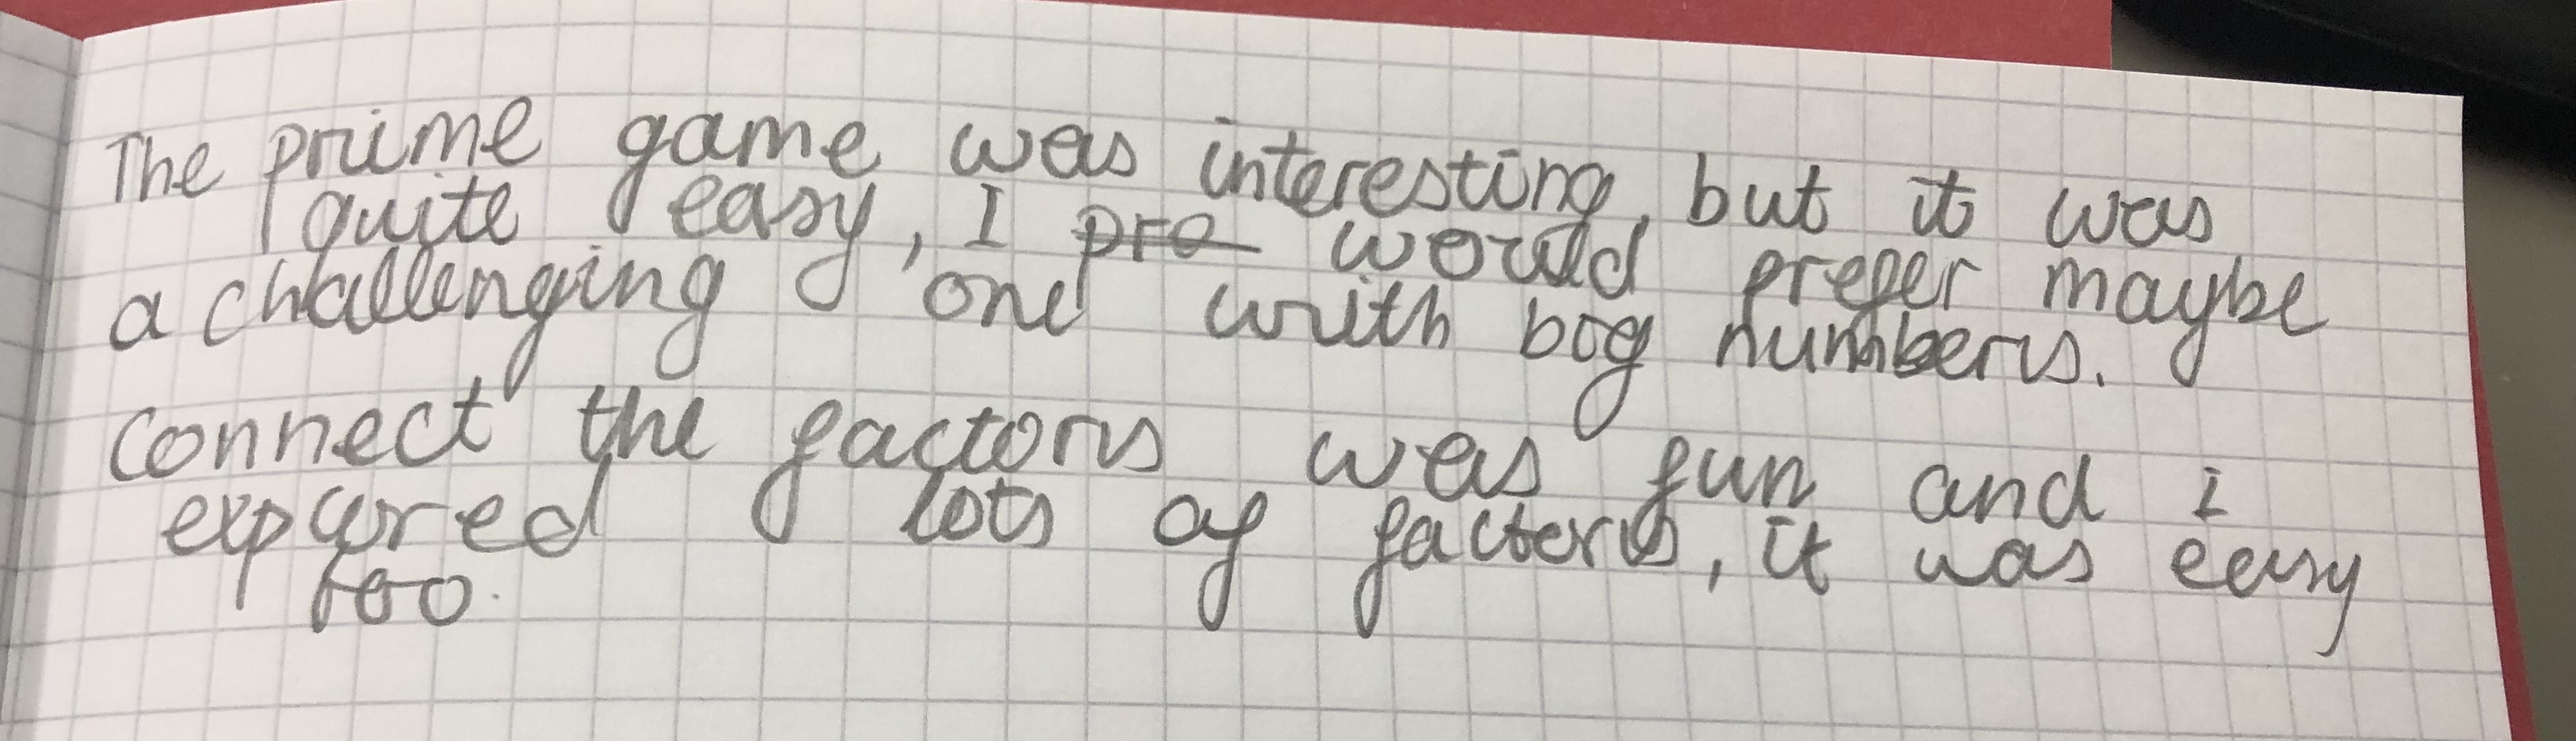 The prime game was interesting, but it was
quite easy, I pro would prefer maybe
a challenging one with big numbers.
Connect the factors was fun and i
explored lots of factors, it was easy
too.